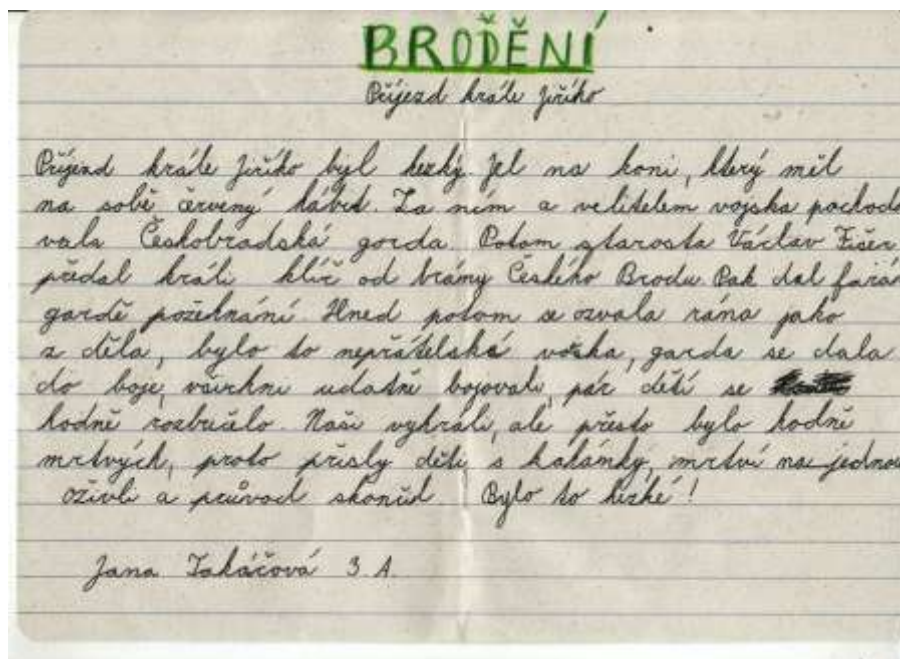 BROĎĚNÍ
Příjezd krále Jiřího
Příjezd krále Jiřího byl hezký. Jel na koni, který měl
na sobě červený hábit. Za ním a velitelem vojska pochodo
vala Českobrodská garda. Potom starosta Václav Fišer
předal králi klíč od brány Českého Brodu. Pak dal farář
gardě požehnání. Hned potom se ozvala rána jako
z děla, bylo to nepřátelské vojska, garda se dala
do boje, všichni udatně bojovali, pár dětí se
hodně rozbrečelo. Naši vyhráli, ale přesto bylo hodně
mrtvých, proto přišly děti s kahánky, mrtví na jednou
oživli a průvod skončil. Bylo to hezké!
Jana Takáčová 3. A.